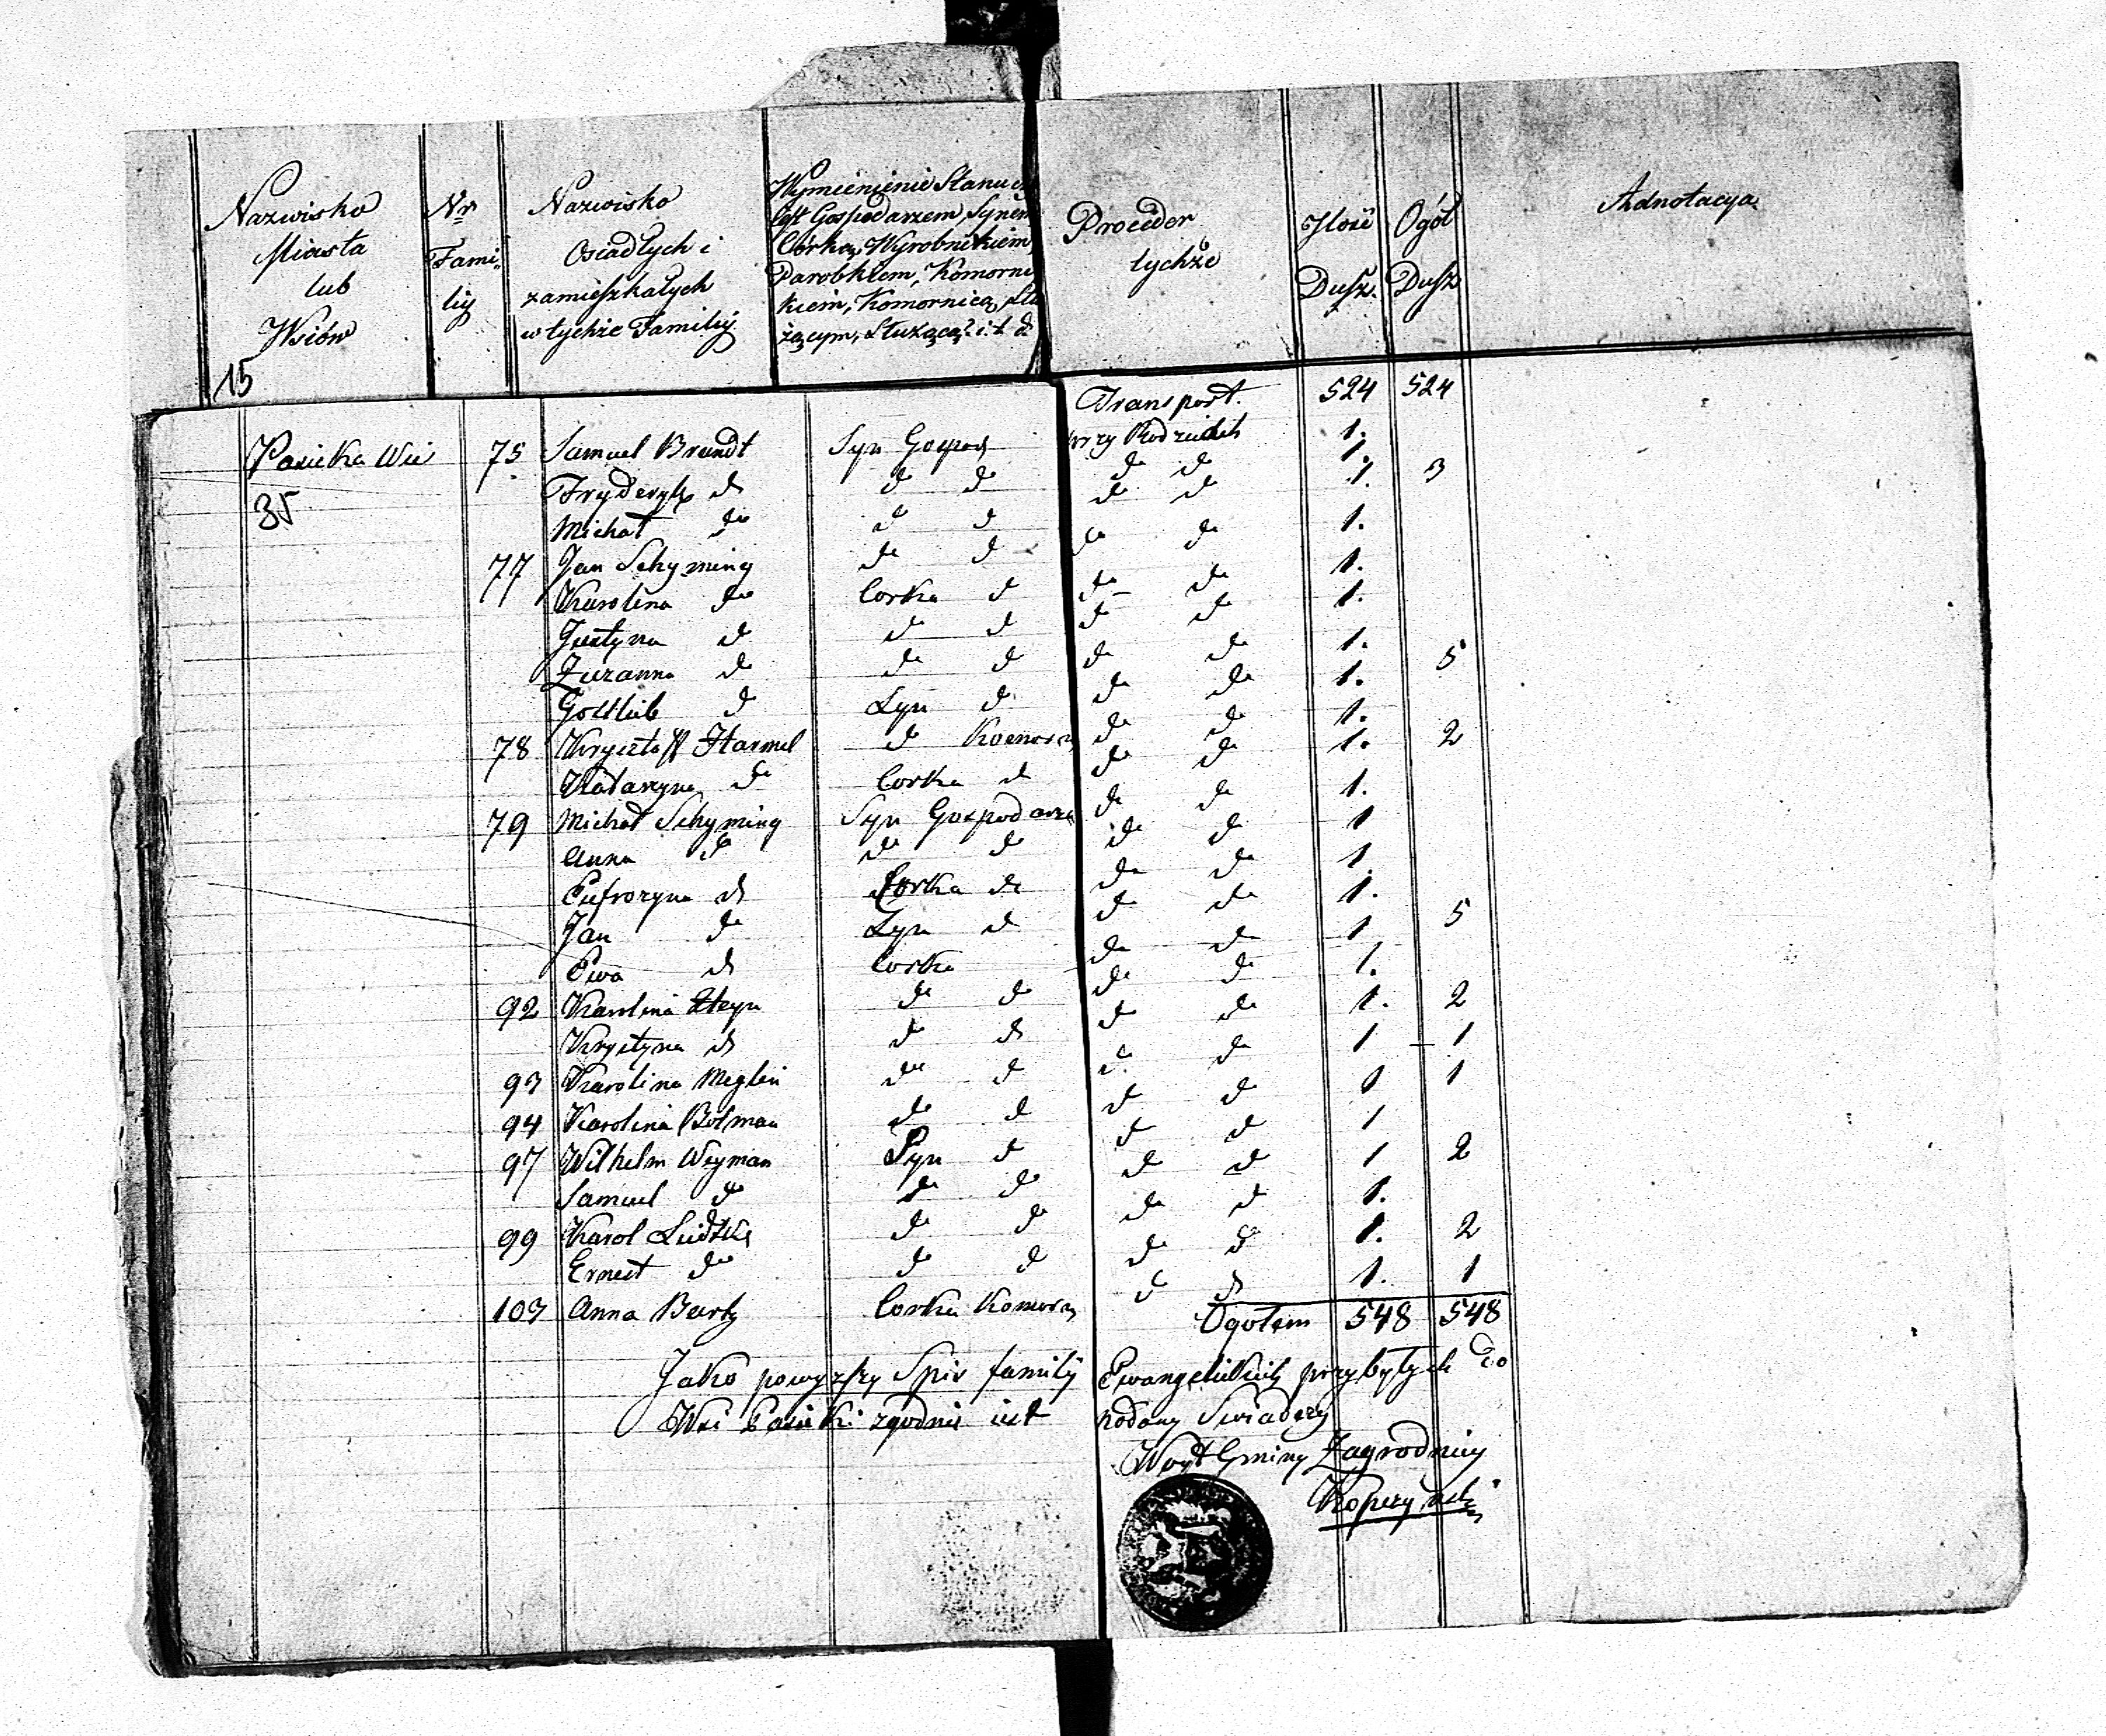 Nazwisko Miasta lub Wsiów
Nr Fami-lij
Nazwisko Osiadłych i zamieszkałych w tychże Familij
Wymienienie Stanu czy Jest Gospodarzem, Synem Córką, Wyrobnikiem, Parobkiem, Komornikiem, Komornicą, Służącym, Służącą i. t. d.
Proceder tychże
Ilość Dusz.
Ogół Dusz
Adnotacya
15
Transport. 524 524
Pasieka Wieś 75 Samuel Brandt Syn Gospod przy Rodzicach 1.
35 Fryderyk do do do do do 1.
Michał do do do do do 1. 3
77 Jan Schyming do do do do 1.
Karolina do Corka do do do 1.
Justyna do do do do do 1.
Zuzanna do do do do do 1.
Gottlieb do Syn do do do 1. 5
78 Krysztoff Harmel do Komorn do do 1.
Katarzyna do Corka do do do 1. 2
79 Michał Schyming Syn Gospodarza do do 1.
Anna do do do do do 1
Eufrozyna do Corka do do do 1
Jan do Syn do do do 1.
Ewa do Corka do do 1 5
92 Karolina do do do do 1.
Krystyna do do do do do 1. 2
93 Karolina do do do do 1 1
94 Karolina Bolman do do do do 1 1
97 Wilhelm Weyman Syn do do do 1
Samuel do do do do do 1 2
99 Karol Ludtke do do do do 1.
Ernest do do do do do 1. 2
103 Anna Corka Komorn do do 1. 1
Ogołem 548 548
Jako powyższy Spis familij Ewangelickich przybyłych do
Wsi Pasieki zgodnie iest podany Swiadczy
Woyt Gminy Zagrodnicy